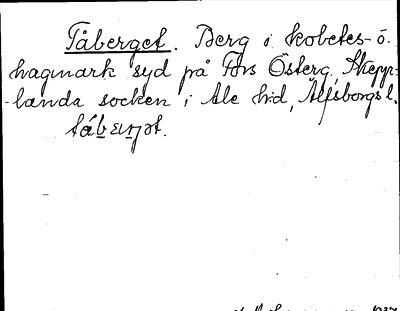 Tåberget. Berg i kobetes- o.
hagmark syd på Fors Österg., Skepp-
-landa socken i Ale hd, Älfsborgs l.